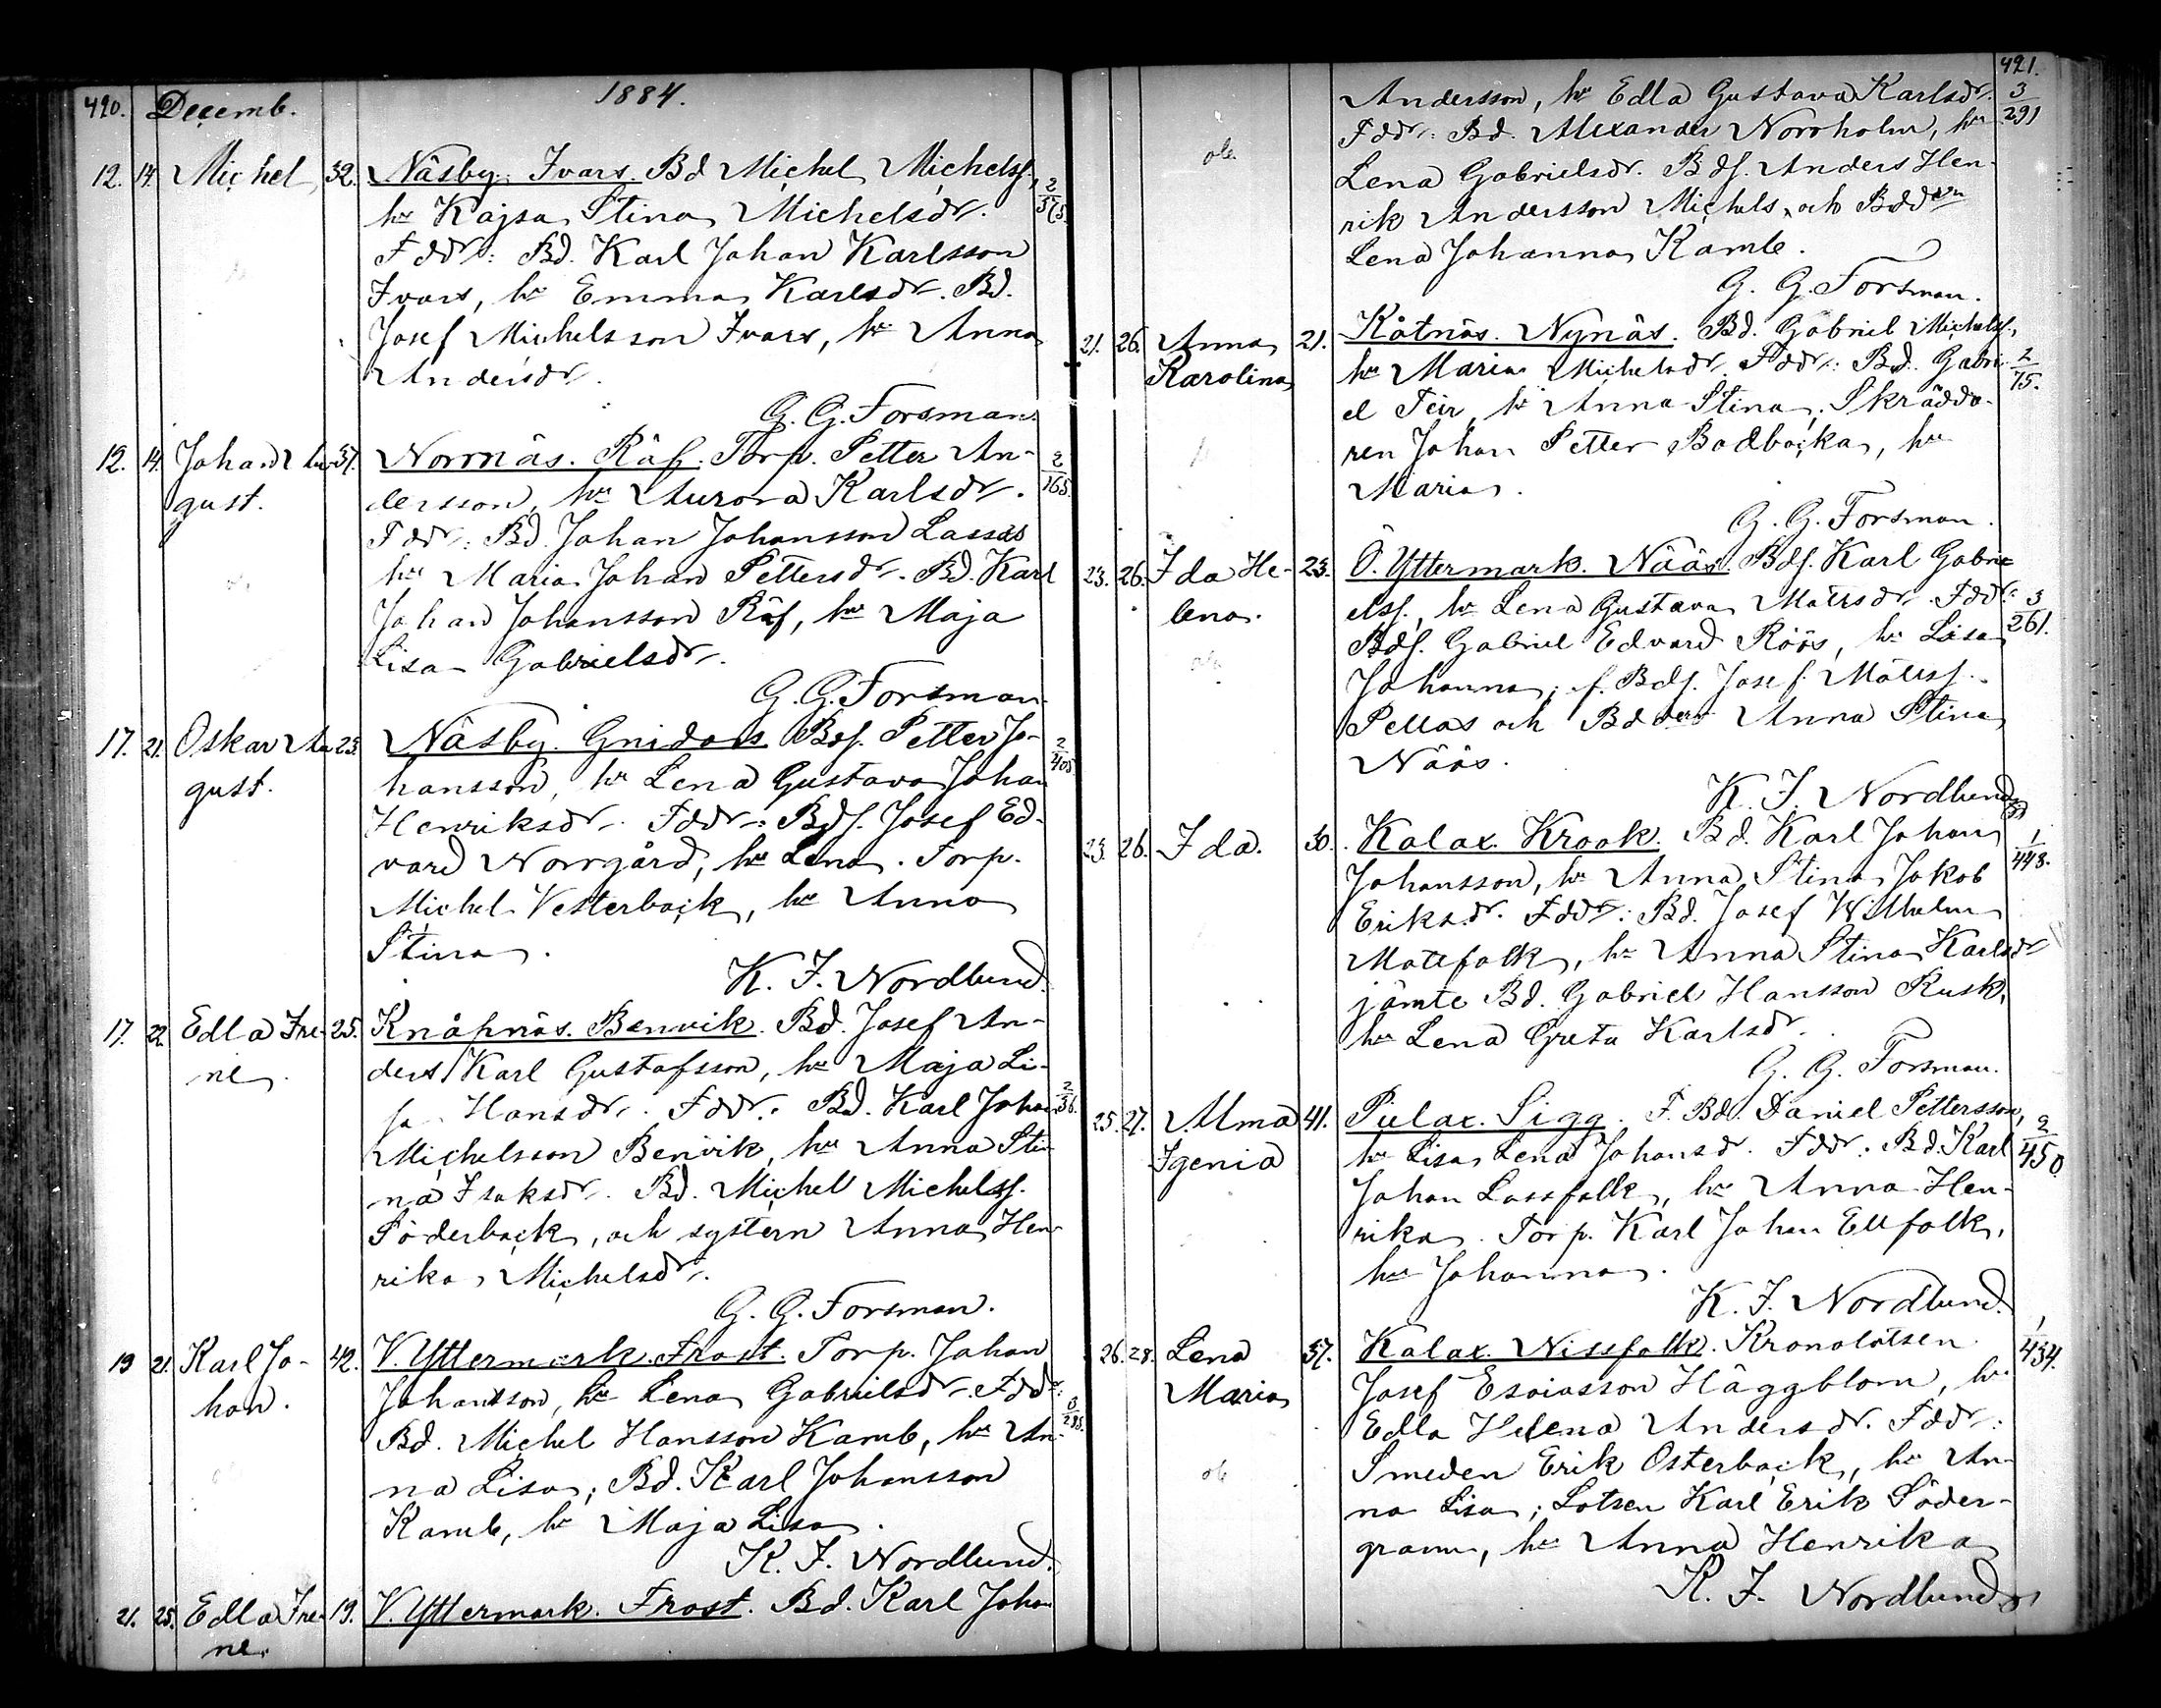 490. Decemb. 1884.
12. 14. Michel 32. Näsby. Ivars. Bd Michel Michelss.,
hu Kajsa Stina Michelsdr. 2/375.
Fddr: Bd. Karl Johan Karlsson
Ivars, hu Emma Karlsdr. Bd.
Josef Michelsson Ivars, hu Anna
Andersdr.
G. G. Forsman.
12. 14. Johan Au- 37. Norrnäs. Räf. Torp. Petter An- 2/165.
gust. dersson, hu Aurora Karlsdr.
Fddr: Bd. Johan Johansson Lassas
hu Maria Johan Pettersdr. Bd. Karl
Johan Johansson Räf, hu Maja
Lisa Gabrielsdr.
G. G. Forsman.
17. 21. Oskar Au- 23. Näsby. Gnidars. Bds. Petter Jo- 2/405
gust. hansson, hu Lena Gustava Johan
Henriksdr. Fddr: Bds. Josef Ed-
vard Norrgård, hu Lena. Torp.
Michel Vesterback, hu Anna
Stina.
K. J. Nordlund.
17. 22. Edla Ire- 25. Knåpnäs. Benvik. Bd. Josef An-
ne. ders Karl Gustafsson, hu Maja Li-
sa Hansdr. Fddr: Bd. Karl Johan 2/36.
Michelsson Benvik, hu Anna Sti-
na Isaksdr. Bd. Michel Michelss.
Söderback, och systern Anna Hen-
rika Michelsdr.
G. G. Forsman.
19 21. Karl Jo- 42. V. Yttermark. Frost. Torp. Johan
han. Johansson, hu Lena Gabrielsdr. Fddr:
Bd. Michel Hansson Kamb, hu An-
na Lisa; Bd. Karl Johansson
Kamb, hu Maja Lisa.
K. J. Nordlund.
21. 25. Edla Ire- 19. V. Yttermark. Frost. Bd. Karl Johan
ne.
491.
Andersson, hu Edla Gustava Karlsdr. 3/291
Fddr: Bd. Alexander Norrholm, hu
Lena Gabrielsdr. Bds. Anders Hen-
rik Andersson Michels, och Bddrn
Lena Johanna Kamb.
G. G. Forsman.
21. 26. Anna 21. Kåtnäs. Nynäs. Bd. Gabriel Michelss,
Karolina hu Maria Michelsdr. Fddr: Bd. Gabri- 2/75.
el Teir, hu Anna Stina. Skrädda-
ren Johan Petter Badbacka, hu
Maria.
G. G. Forsman.
23. 26. Ida He- 23. Ö. Yttermark. Näås. Bds. Karl Gabri-
lena. elss., hu Lena Gustava Mattsdr. Fddr: 3/261.
Bds. Gabriel Edvard Röös, hu Lisa
Johanna; f. Bds. Josef Mattss.
Pellas och Bddern Anna Stina
Näås.
K. J. Nordlund
23. 26. Ida. 30. Kalax. Krook. Bd. Karl Johan 1/448.
Johansson, hu Anna Stina Jakob
Eriksdr. Fddr: Bd. Josef Wilhelm
Mattfolk, hu Anna Stina Karlsdr
jämte Bd. Gabriel Hansson Rusk,
hu Lena Greta Karlsdr.
G. G. Forsman.
25. 27. Alma 41. Pielax. Sigg. F. Bd. Daniel Pettersson,
Igenia hu Lisa Lena Johansdr. Fddr: Bd. Karl 2/450
Johan Lassfolk, hu Anna Hen-
rika. Torp. Karl Johan Ellfolk,
hu Johanna.
K. J. Nordlund.
26. 28. Lena 37. Kalax. Nissfolk. Kronolotsen 1/434.
Maria Josef Esaiasson Häggblom, hu
Edla Helena Andersdr. Fddr:
Smeden Erik Österback, hu An-
na Lisa; Lotsen Karl Erik Söder-
gran, hu Anna Henrika
K. J. Nordlund